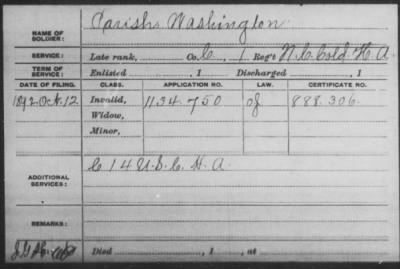 NAME OF SOLDIER: Parish, Washington
SERVICE: Late rank, Co. C, 1 Reg't N.C. Cold H.A.
TERM OF SERVICE: Enlisted , 1 Discharged , 1
DATE OF FILING. CLASS. APPLICATION NO. LAW. CERTIFICATE NO.
1892 Oct. 12 Invalid, 1134.750 888.306
Widow,
Minor,
ADDITIONAL SERVICES: C 14 U.S.C. H.A.
REMARKS:
Died , 1 , at